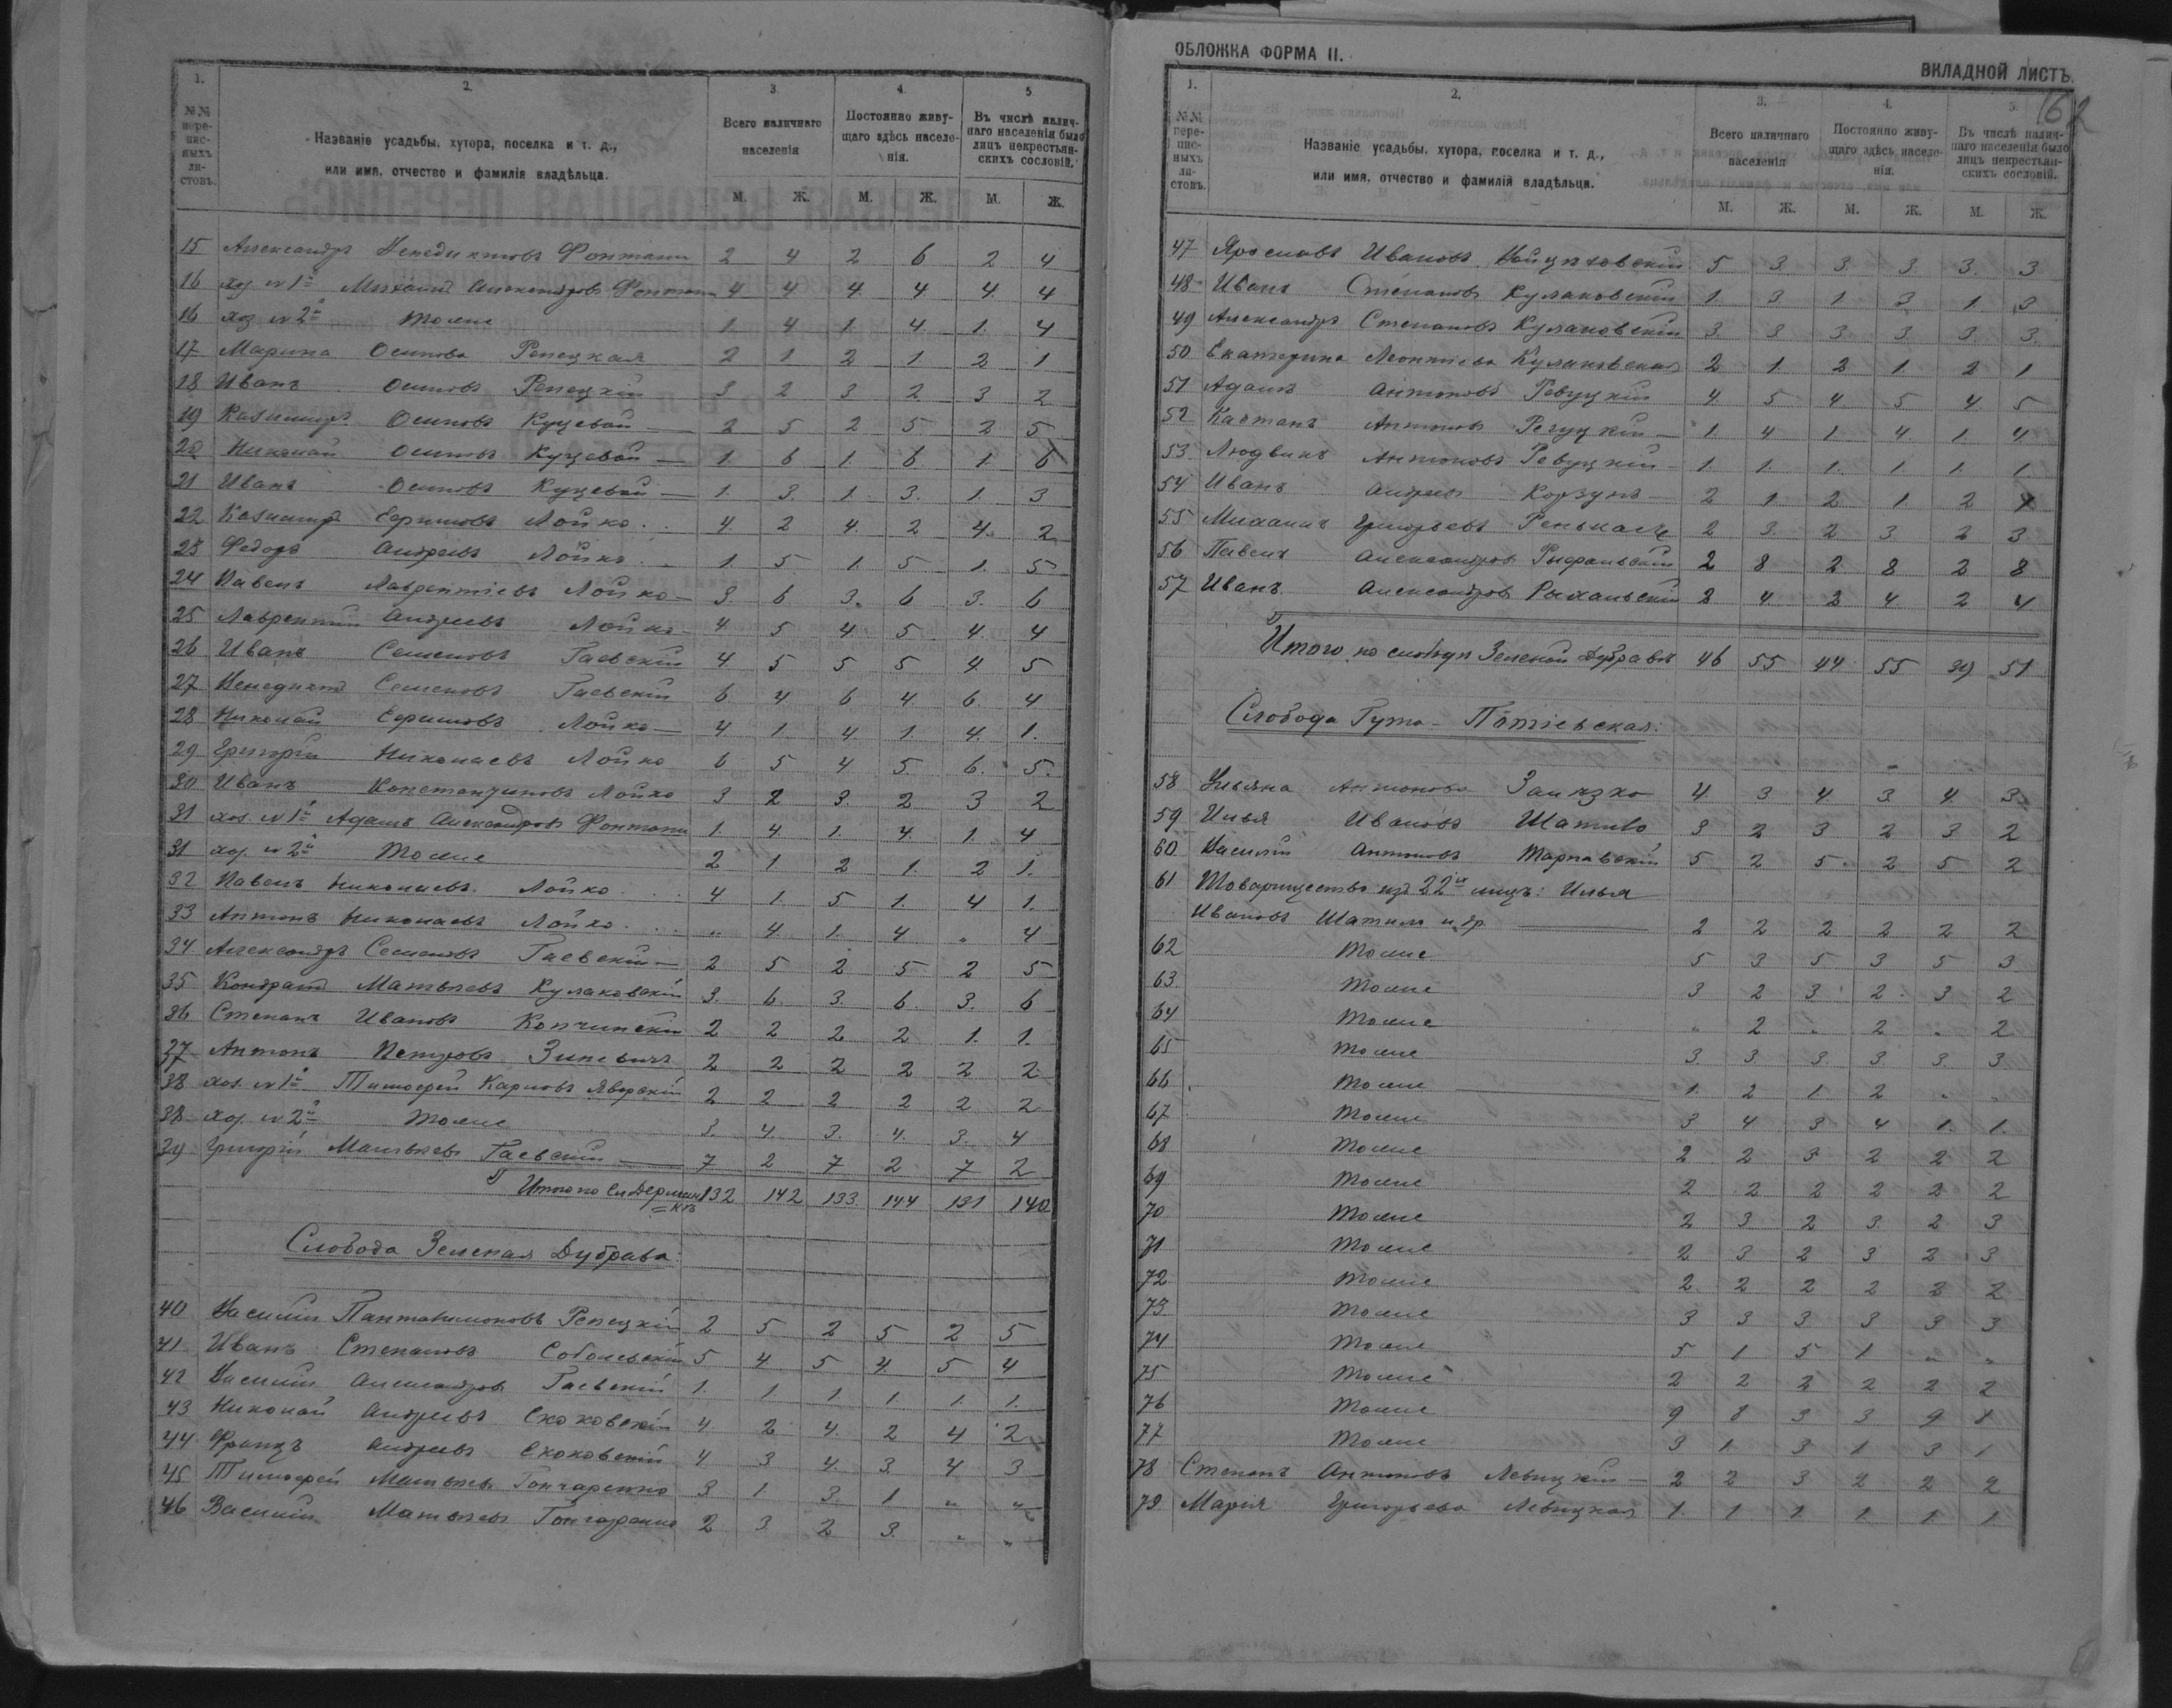 1. 2. 3. 4. 5
№№ переписныхъ листовъ.
Названіе усадьбы, хутора, поселка и т. д., или имя, отчество и фамилія владѣльца.
Всего наличнаго населенія
Постоянно живущаго здѣсь населенія.
Въ числѣ наличнаго населенія было лицъ некрестьянскихъ сословій.
М. Ж. М. Ж. М. Ж.
15 Александръ Бенедиктовъ Фонтанн 2 4 2 6 2 4
16 хоз. №1й Михаилъ Александровъ Фонтанн 4 4 4 4 4 4
16 хоз №2й Тоже 1. 4 1. 4. 1. 4
17 Марина Осипова Репецкая 2 1 2 1. 2 1
18 Иванъ Осиповъ Репецкій 3 2 3 2 3 2
19 Казимиръ Осиповъ Куцевой 2 5 2 5. 2 5
20 Николай Осиповъ Куцевой 1. 6 1. 6 1. 6
21 Иванъ Осиповъ Куцевой 1. 3. 1. 3. 1. 3
22 Казимиръ Ефимовъ Лойко 4. 2 4. 2 4. 2
23 Федоръ Андреевъ Лойко 1. 5 1. 5 1. 5
24 Павелъ Лаврентіевъ Лойко 3. 6 3. 6 3. 6
25 Лаврентій Андреевъ Лойко 4. 5 4. 5 4. 4
26 Иванъ Семеновъ Гаевскій 4 5 5 5 4. 5
27 Бенедиктъ Семеновъ Гаевскій 6 4 6 4. 6. 4
28 Николай Ефимовъ Лойко 4 1. 4. 1. 4. 1.
29 Григорій Николаевъ Лойко 6 5 4 5. 6. 5.
30 Иванъ Константиновъ Лойко 3 2 3. 2 3 2
31 хоз. №1й Адамъ Александровъ Фонтанн 1. 4 1. 4. 1. 4
31 хоз. №2й Тоже 2 1 2 1. 2 1.
32 Павелъ Николаевъ Лойко 4 1. 5 1. 4 1.
33 Антонъ Николаевъ Лойко „ 4. 1. 4 „ 4
34 Александръ Семеновъ Гаевскій 2 5 2 5 2 5
35 Кондратъ Матвѣевъ Кулаковскій 3. 6. 3. 6. 3. 6
36 Степанъ Ивановъ Копчинскій 2 2 2 2 1. 1.
37 Антонъ Петровъ Зиневичъ 2 2 2 2 2 2
38 хоз. №1й Тимофей Карповъ Яворскій 2 2 2 2 2 2
38 хоз. №2й Тоже 3. 4. 3. 4. 3. 4
39 Григорій Матвѣевъ Гаевскій 7 2 7 2 7 2
Итого по 132 142 133 144 131 140
Слобода Зеленая Дубрава:
40 Василій Пантелимоновъ Репецкій 2 5 2 5 2 5
41 Иванъ Степановъ Соболевскій 5 4. 5 4. 5 4
42 Василій Александровъ Гаевскій 1. 1 1 1. 1. 1.
43 Николай Андреевъ Скоковскій 4. 2 4. 2 4 2
44 Францъ Андреевъ Скоковскій 4 3 4. 3. 4 3
45 Тимофей Матвѣевъ Гончаренко 3 1. 3. 1 „ „
46 Василій Матвѣевъ Гончаренко 2 3 2 3. „ „
ОБЛОЖКА ФОРМА II.
ВКЛАДНОЙ ЛИСТЪ.
162
1. 2. 3. 4. 5.
№№ переписныхъ листовъ.
Названіе усадьбы, хутора, поселка и т. д., или имя, отчество и фамилія владѣльца.
Всего наличнаго населенія
Постоянно живущаго здѣсь населенія.
Въ числѣ наличнаго населенія было лицъ некрестьянскихъ сословій.
М. Ж. М. Ж. М. Ж.
47 Ярославъ Ивановъ 5 3. 3. 3 3. 3
48 Иванъ Степановъ Кулаковскій 1. 3 1 3 1 3
49 Александръ Степановъ Кулаковскій 3. 3 3. 3. 3. 3.
50 Екатерина Леонтіева Кулаковская 2 1. 2 1. 2 1
51 Адамъ Антоновъ Ревуцкій 4. 5 4. 5 4. 5
52 Каетанъ Антоновъ Ревуцкій 1. 4 1. 4. 1. 4
53 Людвикъ Антоновъ Ревуцкій 1. 1. 1. 1. 1. 1
54 Иванъ Андреевъ Корзунъ 2 1 2 1. 2
55 Михаилъ Григорьевъ 2 3. 2 3 2 3
56 Павелъ Александровъ 2 8 2 8 2 8
57 Иванъ Александровъ Рыхальскій 2 4. 2 4 2 4
Итого по слободѣ Зеленой Дубравѣ 46 55 44. 55 39 51
Слобода Гута-Потіевская:
58 Ульяна Антонова 4. 3 4. 3 4. 3
59 Илья Ивановъ Шатило 3 2 3 2 3 2
60 Василій Антоновъ Тарнавскій 5 2 5. 2 5 2
61 Товарищество изъ 22х лицъ: Илья
Ивановъ Шатило и др. 2 2 2 2 2 2
62 Тоже 5 3 5 3 5 3
63. Тоже 3 2 3 2. 3 2
64 Тоже „ 2 „ 2 „ 2
65 Тоже 3. 3 3. 3. 3. 3
66 Тоже 1. 2 1 2 „ „
67 Тоже 3 4 3 4 1. 1.
68 Тоже 2 2 3 2 2 2
69 Тоже 2 2 2 2 2 2
70 Тоже 2 3 2 3. 2 3
71 Тоже 2 3 2 3 2 3
72 Тоже 2 2 2 2 2 2
73. Тоже 3 3 3 3 3 3
74 Тоже 5 1 5 1 „ „
75 Тоже 2 2 2 2 2 2
76 Тоже 9 8 3 3 9 8
77 Тоже 3 1. 3 1 3 1
78 Степанъ Антоновъ Левицкій 2 2 3 2 2 2
79 Марія Григорьева Левицкая 1. 1 1 1. 1. 1.